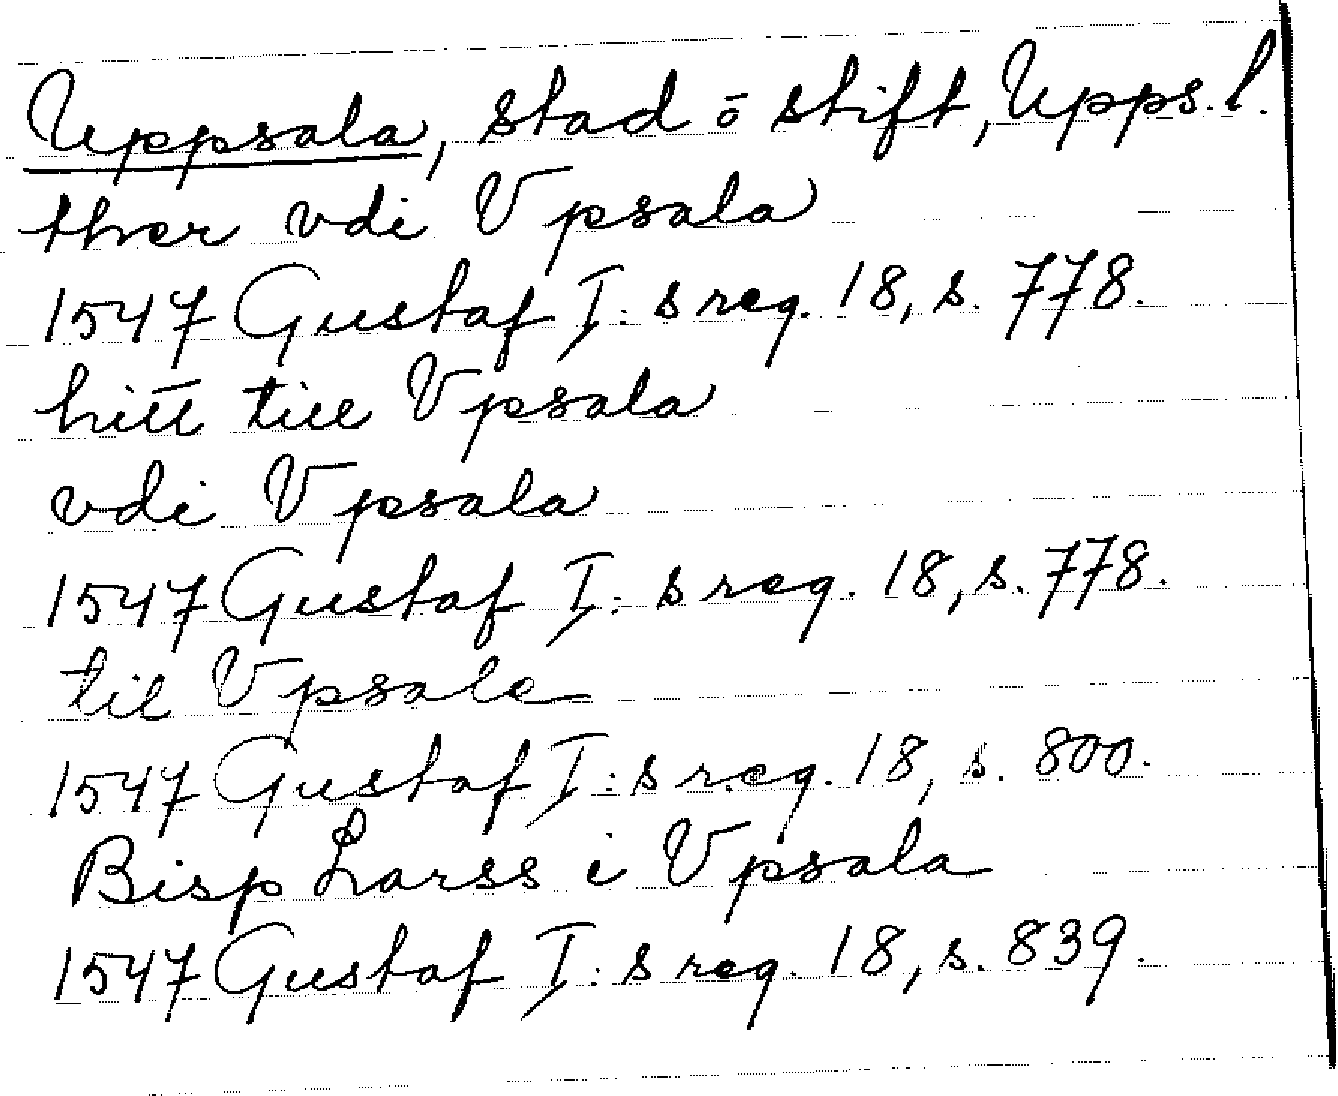 Uppsala, stad o stift, Upps. l.
ther vdi Vpsala
1547 Gustaf I: s reg. 18, s. 778.
hitt till Vpsala
vdi Vpsala
1547 Gustaf I: s reg. 18, s. 778.
til Vpsala
1547 Gustaf I: s reg. 18, s. 800.
Bisp Larss i Vpsala
1547 Gustaf I: s reg. 18, s. 839.